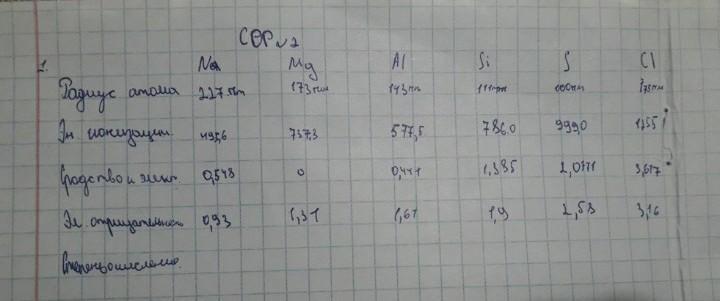 СОР №2
1. Na Mg Al Si S Cl
Радиус атома 227 пм 173 пм 143 пм 111 пм 100 пм
Эн. ионизации 495,6 737,3 577,5 786.0 999,0 1255
Сродство к элект. 0,548 0 0,441 1,385 2,0771 3,617
Эл. отрицательность 0,93 1,31 1,61 1,9 2,58 3,16
Степень окисление.